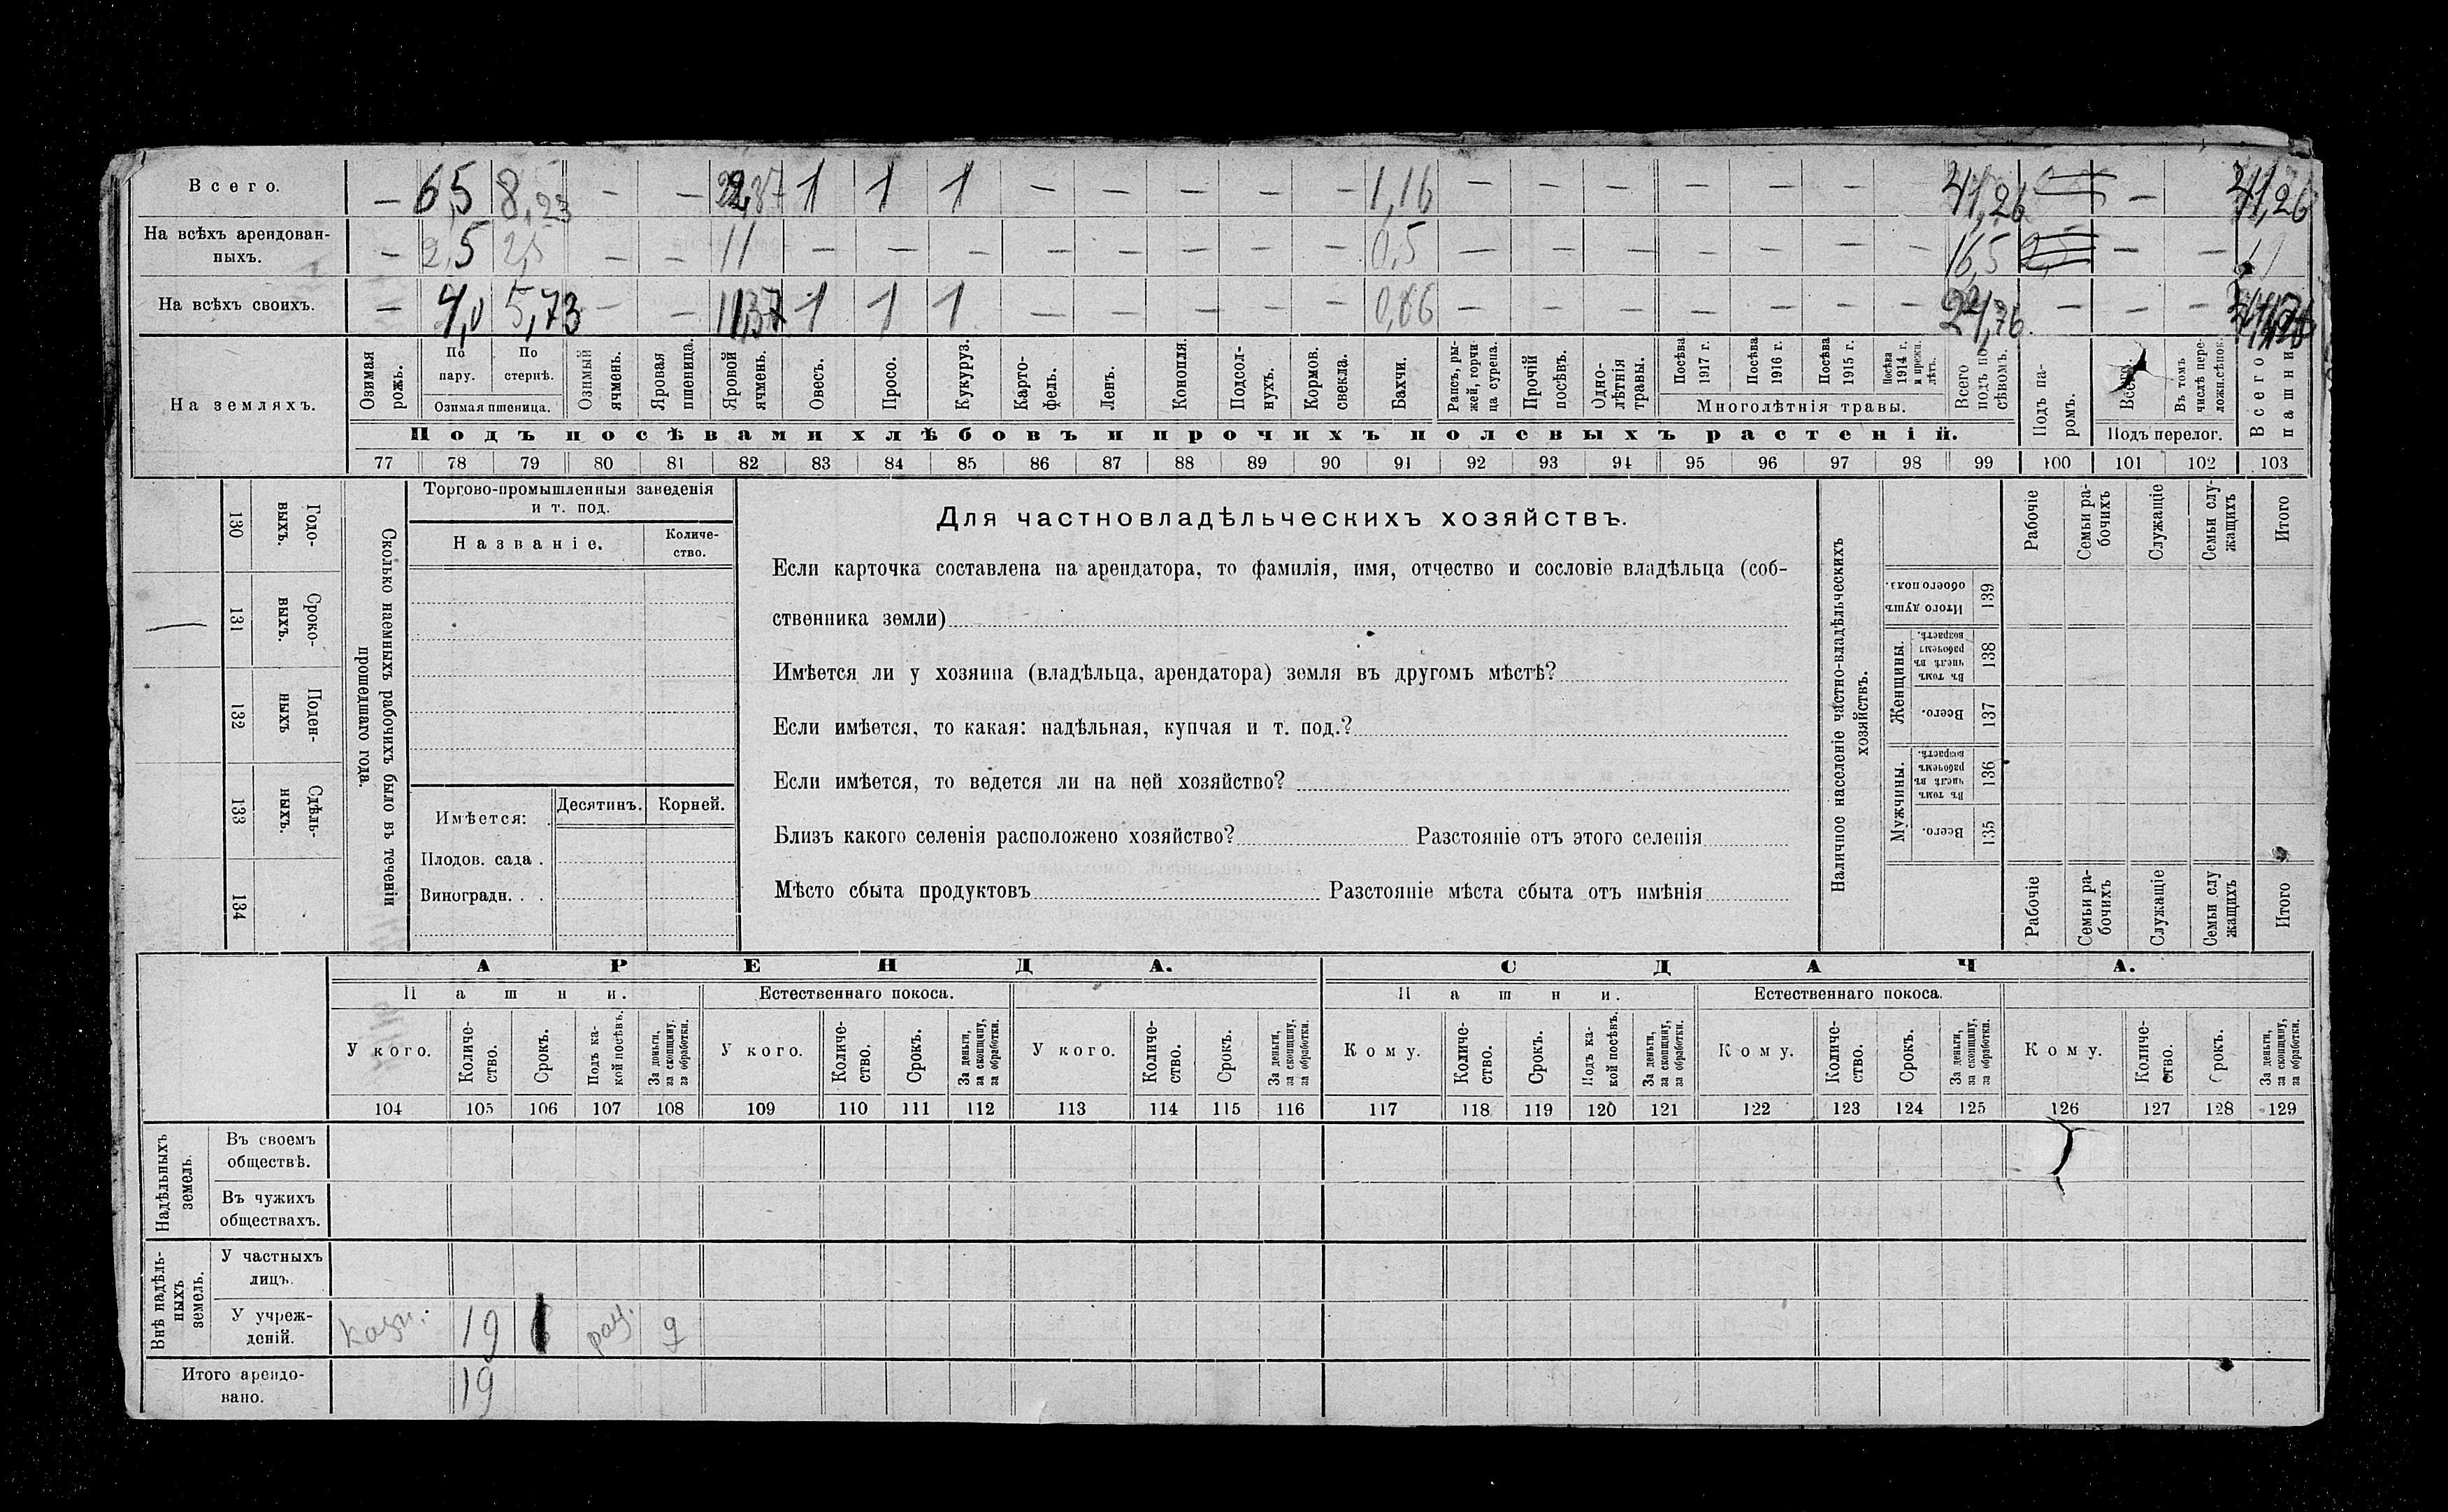 Всего. — 6,5 8,23 — — 22,37 1 1 1 — — — — — 1,16 — — — — — — — 41,26 — 41,26
На всѣхъ арендован-
ныхъ. — 2,5 2,5 — — 11 — — — — — — — — 0,5 — — — — — — — 16,5 — —
На всѣхъ своихъ. — 4,0 5,73 — — 11,37 1 1 1 — — — — — 0,66 — — — — — — — 24,76 — — —
На земляхъ.
Озимая рожь.
По пару.
По стернѣ.
Озимая пшеница.
Озимый ячмень.
Яровая пшеница.
Яровой ячмень.
Овесъ.
Просо.
Кукуруз.
Карто-
фель.
Ленъ.
Конопля.
Подсол-
нухъ.
Кормов. свекла.
Бахчи.
Рапсъ, ры-
жей, горчи
ца сурепа.
Прочій посѣвъ.
Одно-
лѣтнія травы.
Посѣва 1917 г.
Посѣва 1916 г.
Посѣва 1915 г.
Посѣва 1914 г. и прежн. лѣтъ.
Многолѣтнія травы.
Всего подъ по
сѣвомъ.
Подъ па-
ромъ.
Всего.
Въ томъ числѣ пере-
ложн.сѣнок.
Подъ перелог.
Всего пашни
Подъ посѣвами хлѣбовъ и прочихъ полевыхъ растеній.
77 78 79 80 81 82 83 84 85 86 87 88 89 90 91 92 93 94 95 96 97 98 99 100 101 102 103
Сколько наемныхъ рабочихъ было въ теченіи
прошедшаго года.
Годо-
выхъ.
130
Сроко-
выхъ.
131
—
Поден-
ныхъ
132
Сдѣль-
ныхъ.
133
134
Торгово-промышленныя заведенія
и т. под.
Названіе.
Количе-
ство.
Имѣется:
Десятинъ.
Корней.
Плодов. сада .
Виноградн. . .
Для частновладѣльческихъ хозяйствъ.
Если карточка составлена на арендатора, то фамилія, имя, отчество и сословіе владѣльца (соб-
ственника земли)
Имѣется ли у хозяина (владѣльца, арендатора) земля въ другомъ мѣстѣ?
Если имѣется, то какая: надѣльная, купчая и т. под.?
Если имѣется, то ведется ли на ней хозяйство?
Близъ какого селенія расположено хозяйство? Разстояніе отъ этого селенія
Мѣсто сбыта продуктовъ Разстояніе мѣста сбыта отъ имѣнія
Наличное населеніе частно-владѣльческихъ
хозяйствъ.
Рабочіе
Семьи ра-
бочихъ
Служащіе
Семьи слу-
жащихъ
Итого
Итого душъ обоего пола.
139
Женщины.
Въ томъ числѣ въ рабочемъ возрастѣ.
138
Всего.
137
Мужчины.
Въ томъ числѣ въ рабочемъ возрастѣ.
136
Всего.
135
Рабочіе
Семьи ра-
бочихъ
Служащіе
Семьи слу
жащихъ
Итого
АРЕНДА. СДАЧА.
Пашни. Естественнаго покоса. Пашни. Естественнаго покоса.
У кого.
Количе-
ство.
Срокъ.
Подъ ка-
кой посѣвъ.
За деньги, за скопщину, за обработки.
У кого.
Количе-
ство.
Срокъ.
За деньги, за скопщину, за обработки.
У кого.
Количе-
ство.
Срокъ.
За деньги, за скопщину, за обработки.
Кому.
Количе-
ство.
Срокъ.
Подъ ка-
кой посѣвъ.
За деньги, за скопщину, за обработки.
Кому.
Количе-
ство.
Срокъ.
За деньги, за скопщину, за обработки.
Кому.
Количе-
ство.
Срокъ.
За деньги, за скопщину, за обработки.
104 105 106 107 108 109 110 111 112 113 114 115 116 117 118 119 120 121 122 123 124 125 126 127 128 129
Надѣльныхъ земель.
Въ своемъ
обществѣ.
Въ чужихъ
обществахъ.
Внѣ надѣль-
ныхъ земель.
У частныхъ
лицъ.
У учреж-
деній. Казн. 19 раз. д
Итого арендо-
вано. 19